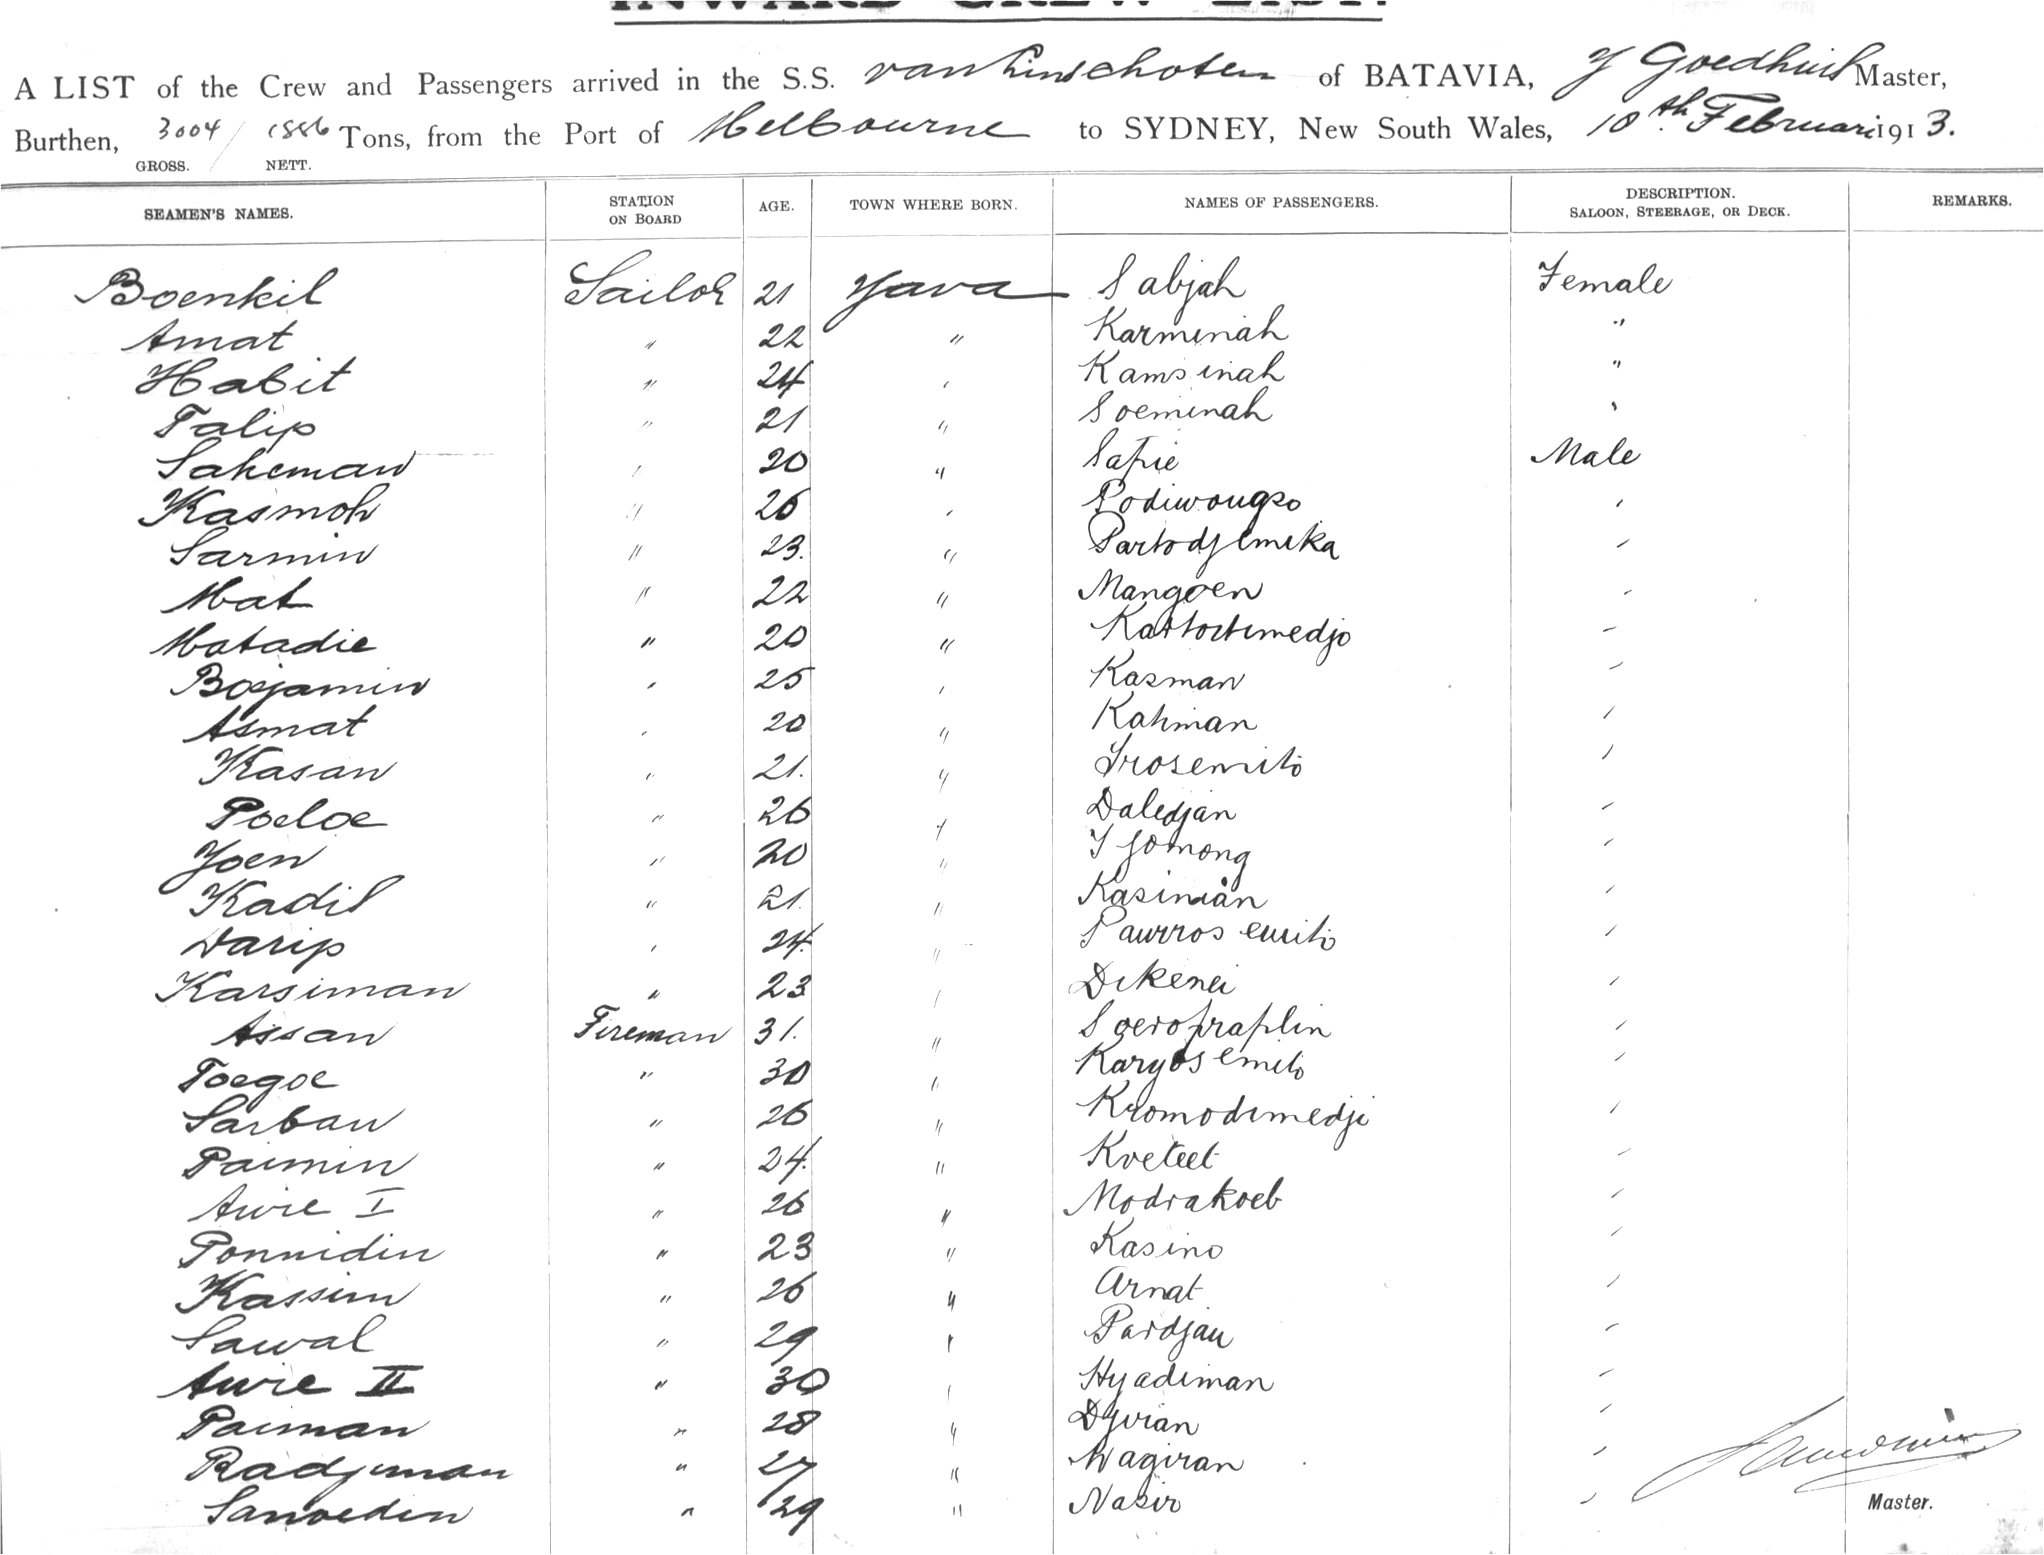 INWARD CREW LIST.
A LIST of the Crew and Passengers arrived in the S.S. van Linschoten of BATAVIA, J Goedhuis Master,
Burthen, 3004 / 1886 Tons, from the Port of Melbourne to SYDNEY, New South Wales, 10th Februari 1913.
GROSS. NETT.
SEAMEN'S NAMES. STATION ON BOARD AGE. TOWN WHERE BORN. NAMES OF PASSENGERS. DESCRIPTION. SALOON, STEERAGE, OR DECK. REMARKS.
Boenkil Sailor 21 Yava Sabjah Female
Amat " 22 " Karminah "
Habit " 24 " Kamsinah "
Talip " 21 " Soeminah "
Sakeman " 20 " Safie Male
Kasmoh " 26 " Podiwongso "
Sarmin " 23. " Partodjemika "
Mat " 22 " Mangoen "
Matadie " 20 " "
Bojamin " 25 " Kasman "
Asmat " 20 " Kahman "
Kasan " 21. " Irosemito "
Poeloe " 26 " Daledjan "
Yoen " 20 " "
Kadil " 21. " Kasiman "
Darip " 24. " "
Karsiman " 23 " "
Assan Fireman 31. " "
Toegoe " 30 " Karyosemito "
Sarban " 26 " Kromodimedji "
Paimin " 24. " "
Awie I " 26 " Modrakoeb "
Ponnidin " 23 " Kasino "
Kassim " 26 " Arnat "
Sawal " 29 " Pardjan "
Awie II " 30 " Hyadiman "
Paiman " 28 " "
Radjiman " 27 " Wagiran "
Sanoedin " 29 " Nasir "
Master.